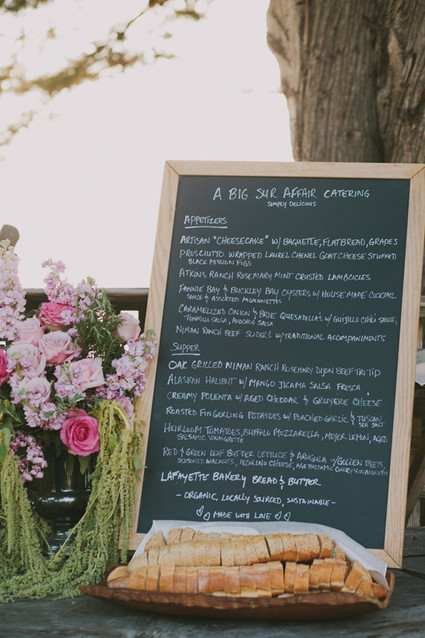 A BIG SUR AFFAIR CATERING
SIMPLY DELICIOUS
APPETIZERS
ARTISAN "CHEESECAKE" W/ BAGUETTE, FLATBREAD, GRAPES
PROSCIUTTO WRAPPED LAUREL CHENEL GOAT CHEESE STUFFED
BLACK MISSION FIGS
ATKINS RANCH ROSEMARY MINT CRUSTED LAMBCICLES
FANNIE BAY & BUCKLEY BAY OYSTERS W/ HOUSE MADE COCKTAIL
SAUCE & ASSORTED MIGNONETTES
CARAMELIZED ONION & BRIE QUESADILLA'S W/ GUAJILLO CHILI SAUCE,
TOMATILLO SALSA, AVOCADO SALSA
NIMAN RANCH BEEF SLIDERS W/ TRADITIONAL ACCOMPANIMENTS
SUPPER
OAK GRILLED NIMAN RANCH ROSEMARY DIJON BEEF TRI TIP
ALASKAN HALIBUT W/ MANGO JICAMA SALSA FRESCA
CREAMY POLENTA W/ AGED CHEDDAR & GRUYERE CHEESE
ROASTED FINGERLING POTATOES W/ POACHED GARLIC & TUSCAN
SEA SALT
HEIRLOOM TOMATOES, BUFFALO MOZZARELLA, MEYER LEMON, AGED
BALSAMIC VINAIGRETTE
RED & GREEN LEAF BUTTER LETTUCE & ARUGULA W/ GOLDEN BEETS,
SEASONED WALNUTS, PECORINO CHEESE, CHERRY VINAIGRETTE
LAFAYETTE BAKERY BREAD & BUTTER
- ORGANIC, LOCALLY SOURCED, SUSTAINABLE -
♡♡ MADE WITH LOVE ♡♡